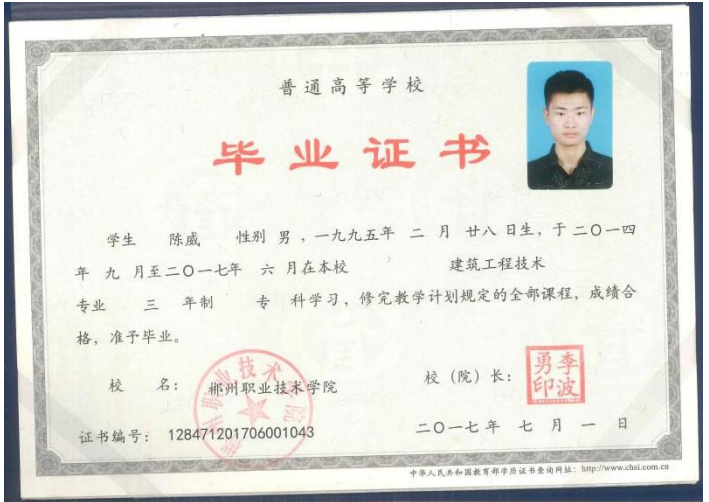 普通高等学校
毕业证书
学生 陈威 性别 男 ，一九九五年 二 月 廿八 日生，于 二〇一四
年 九 月至二〇一七年 六 月在本校 建筑工程技术
专业 三 年制 专 科学习，修完教学计划规定的全部课程，成绩合
格，准予毕业。
校 名： 郴州职业技术学院
郴州职业技术学院
校（院）长：
李波勇印
证书编号： 128471201706001043
二〇一七 年 七 月 一 日
中华人民共和国教育部学历证书查询网址：http://www.chsi.com.cn